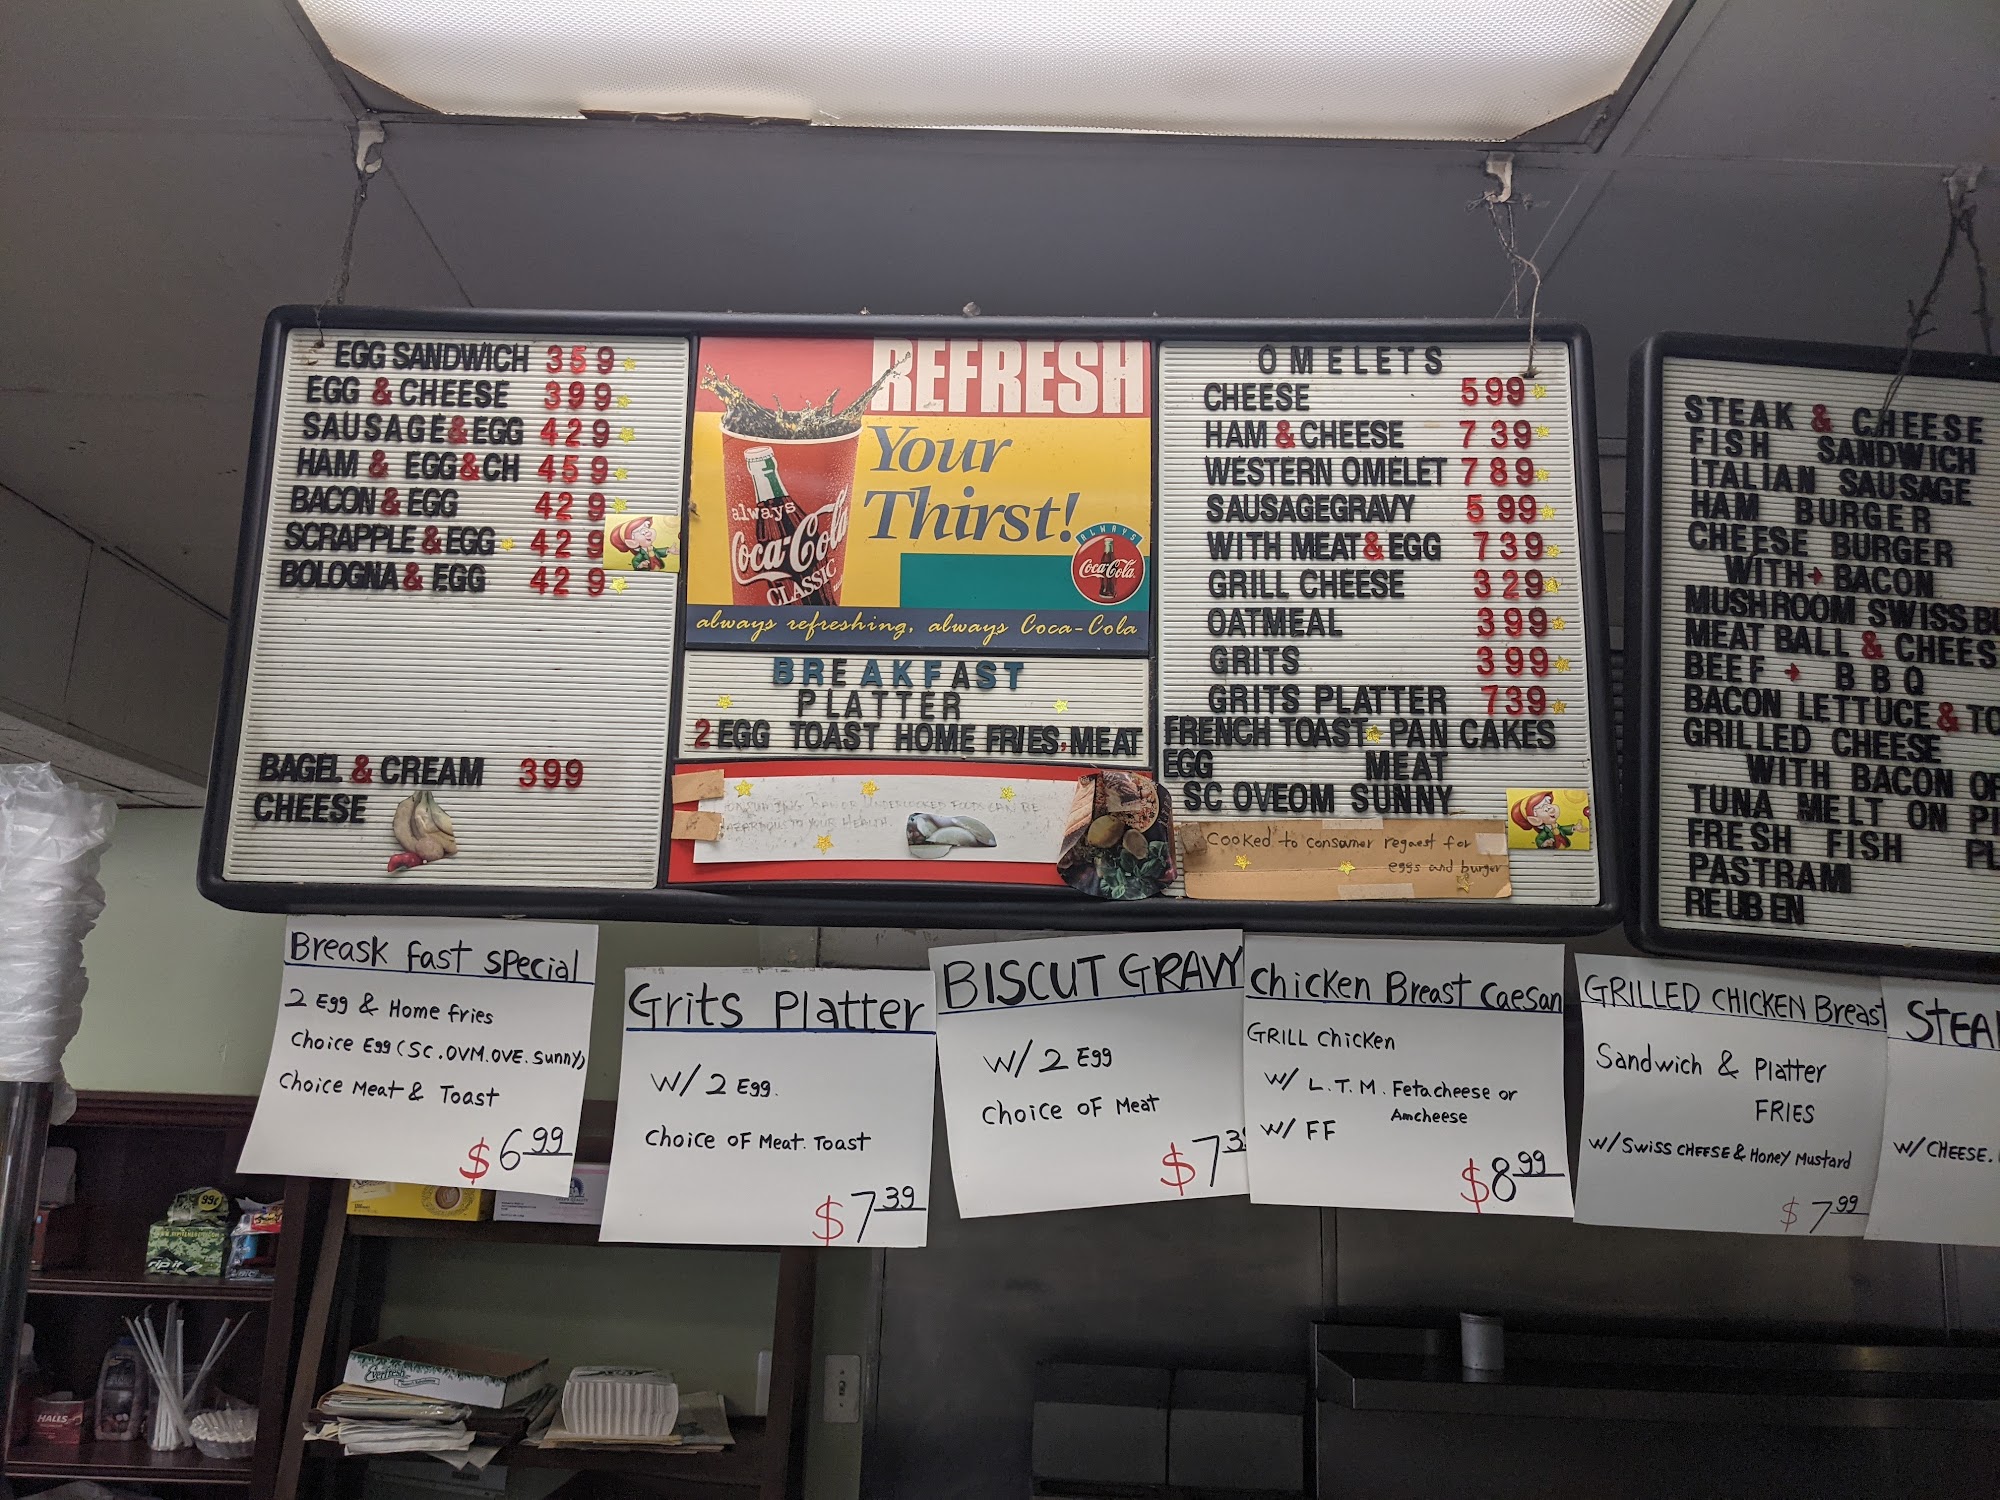 EGG SANDWICH 359
EGG & CHEESE 399
SAUSAGE&EGG 429
HAM & EGG&CH 459
BACON & EGG 429
SCRAPPLE & EGG 429
BOLOGNA & EGG 429
BAGEL & CREAM 399
CHEESE
REFRESH
Your
Thirst!
always
Coca-Cola
CLASSIC
ALWAYS
Coca-Cola
always refreshing, always Coca-Cola
BREAKFAST
PLATTER
2 EGG TOAST HOME FRIES, MEAT
RAW OR UNDERCOOKED FOODS CAN BE
HAZARDOUS TO YOUR HEALTH.
OMELETS
CHEESE 599
HAM & CHEESE 739
WESTERN OMELET 789
SAUSAGEGRAVY 599
WITH MEAT&EGG 739
GRILL CHEESE 329
OATMEAL 399
GRITS 399
GRITS PLATTER 739
FRENCH TOAST PAN CAKES
EGG MEAT
SC OVEOM SUNNY
Cooked to consumer request for
eggs and burger
STEAK & CHEESE
FISH SANDWICH
ITALIAN SAUSAGE
HAM BURGER
CHEESE BURGER
WITH BACON
MUSHROOM SWISS BU
MEAT BALL & CHEES
BEEF B B Q
BACON LETTUCE & TO
GRILLED CHEESE
WITH BACON OR
TUNA MELT ON PI
FRESH FISH PL
PASTRAMI
REUBEN
Breask fast special
2 Egg & Home fries
Choice Egg (SC. OVM. OVE. Sunny)
Choice Meat & Toast
$6.99
Grits Platter
W/ 2 Egg.
Choice OF Meat. Toast
$7.39
BISCUT GRAVY
W/ 2 Egg
Choice OF Meat
$7.39
Chicken Breast Caesan
GRILL Chicken
W/ L.T.M. Fetacheese or
Amcheese
W/ FF
$8.99
GRILLED CHICKEN Breast
Sandwich & Platter
FRIES
W/ SWISS CHEESE & Honey Mustard
$7.99
STEA
W/ CHEESE.
99¢
rip it
HALLS
Everfresh